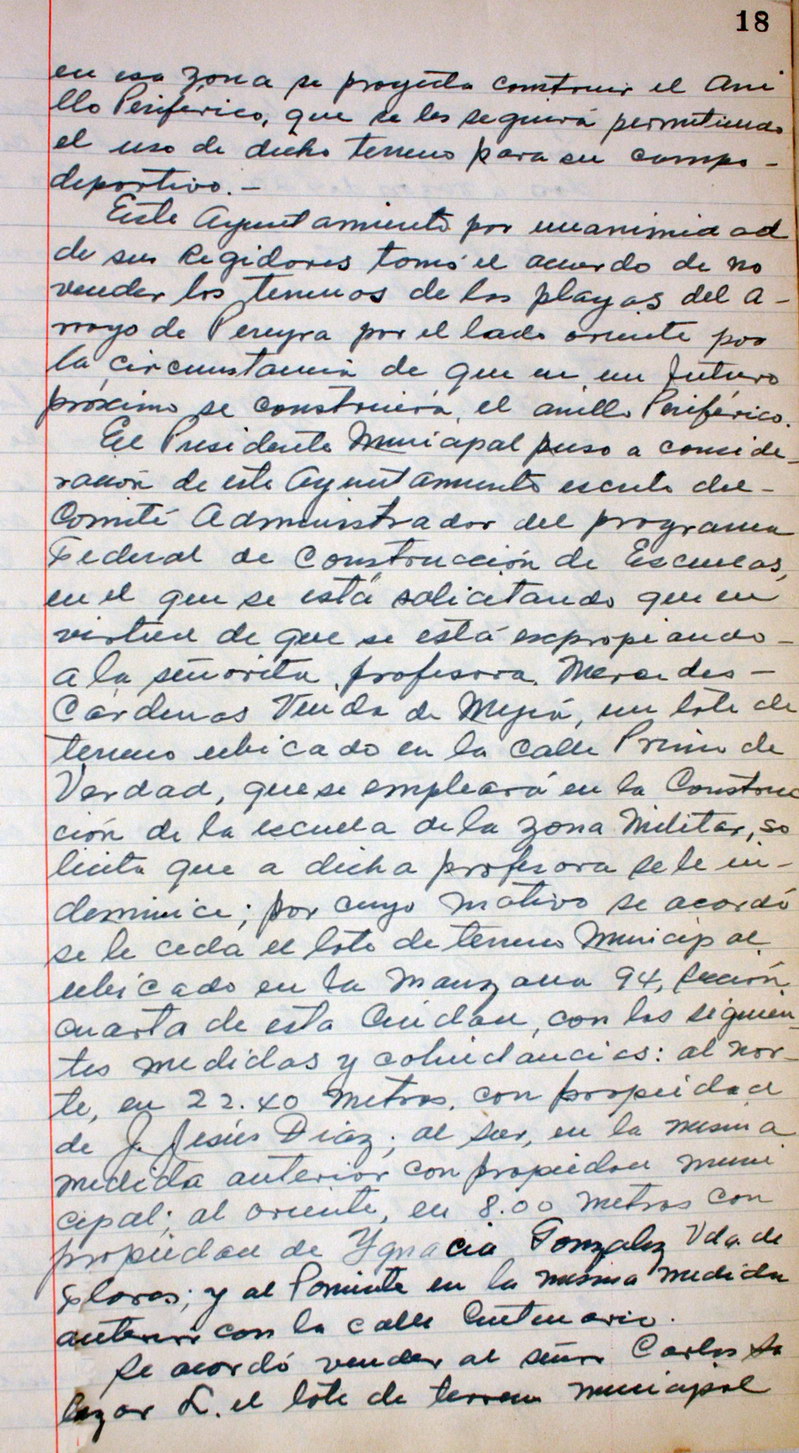 18
en esa zona se proyecta construir el Ani
llo Periférico, que se les seguirá permitiendo
el uso de dicho terreno para su campo -
deportivo. -
Este Ayuntamiento por unanimidad
de sus Regidores tomó el acuerdo de no
vender los terrenos de las playas del a-
rroyo de Pereyra por el lado oriente por
la circunstancia de que en un futuro
próximo se construirá el anillo Periférico.
El Presidente Municipal puso a conside-
ración de este Ayuntamiento escrito del -
Comité Administrador del programa
Federal de Construcción de Escuelas,
en el que se está solicitando que en
virtud de que se está expropiando -
a la señorita profesora Mercedes -
Cárdenas Viuda de Mejía, un lote de
terreno ubicado en la calle Primo de
Verdad, que se empleará en la Construc
ción de la escuela de la zona Militar, so
licita que a dicha profesora se le in-
demnice; por cuyo motivo se acordó
se le ceda el lote de terreno Municipal
ubicado en la Manzana 94, Sección
cuarta de esta Ciudad, con las siguien-
tes medidas y colindancias: al nor-
te, en 22.40 metros, con propiedad
de J. Jesús Díaz; al sur, en la misma
medida anterior con propiedad muni
cipal; al oriente, en 8.00 metros con
propiedad de Ygnacia Gonzalez Vda. de
Flores; y al Poniente en la misma medida
anterior con la calle Centenario.
Se acordó vender al señor Carlos Sa
lazar L. el lote de terreno municipal